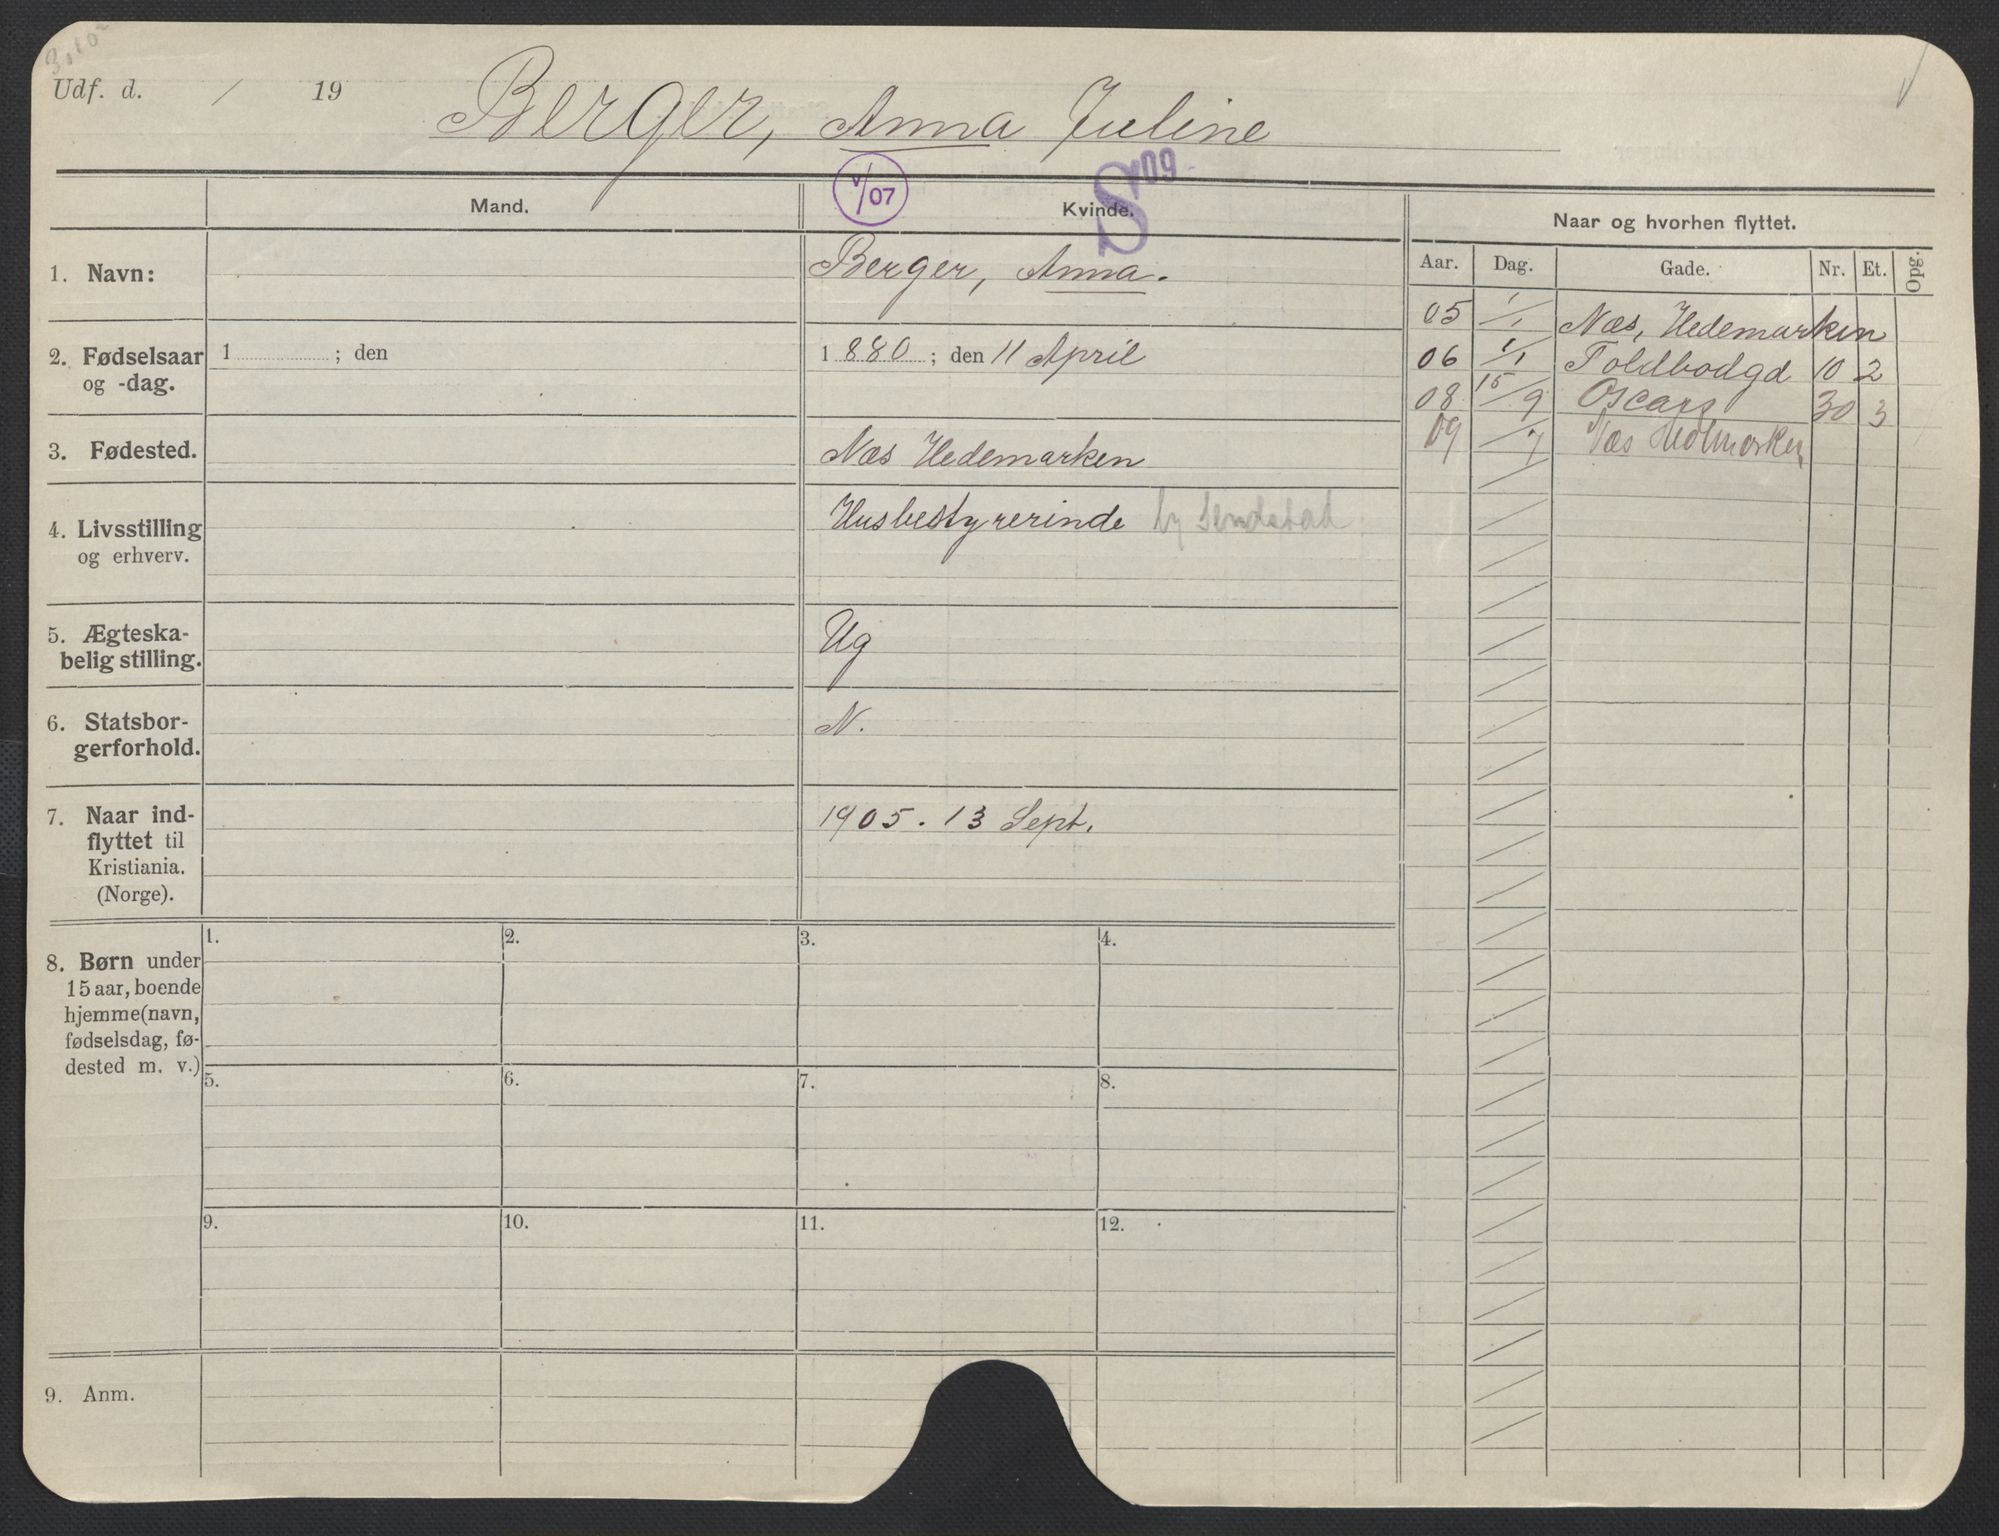 Udf. d. / 19
Berger, Anna Juline
V/07
S'09
Mand.
Kvinde.
Naar og hvorhen flyttet.
Aar. Dag. Gade. Nr. Et. Opg.
1. Navn:
Berger, Anna.
2. Fødselsaar
og -dag.
1 ; den
1 880 ; den 11 April
3. Fødested.
Næs Hedemarken
4. Livsstilling
og erhverv.
Husbestyrerinde
5. Ægteska-
belig stilling.
Ug
6. Statsbor-
gerforhold.
N.
7. Naar ind-
flyttet til
Kristiania.
(Norge).
1905. 13 Sept.
05 1/1 Næs, Hedemarken
06 1/1 Toldbodgd 10 2
08 15/9 Oscars 30 3
09 /7 Næs Hedmarken
8. Børn under
15 aar, boende
hjemme (navn,
fødselsdag, fø-
dested m. v.)
1. 2. 3. 4.
5. 6. 7. 8.
9. 10. 11. 12.
9. Anm.